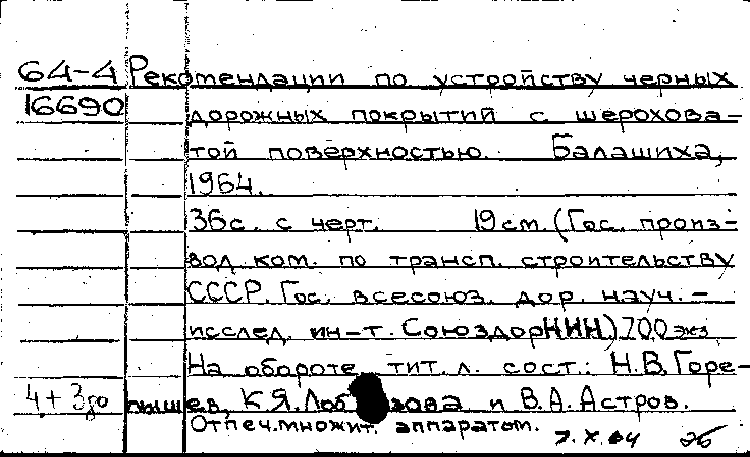 64-4 Рекомендации по устройству черных
16690 дорожных покрытий с шерохова-
той поверхностью. Балашиха,
1964.
36с. с черт. 19см. (Гос. произ-
вод. ком. по трансп. строительству
СССР. Гос. всесоюз. дор. науч.-
исслед. ин-т. СоюздорНИИ) 700 экз.
На обороте тит. л. сост.: Н.В. Горе-
лышев, К.Я. Лоб зова и В.А. Астров.
Отпеч. множит. аппаратом.
7.X.64